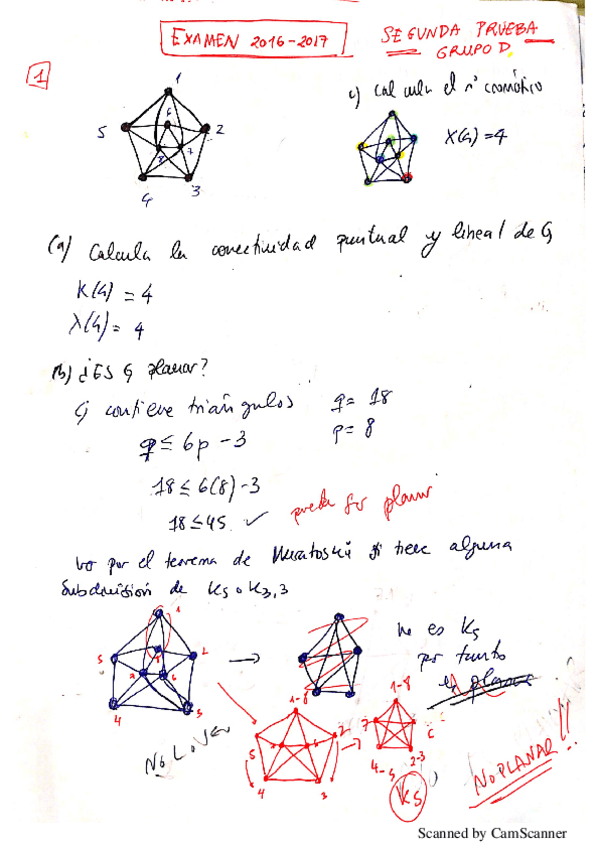 EXAMEN 2016-2017
SEGUNDA PRUEBA
GRUPO D.
1
1
5
2
6
8
7
4
3
c) Calcula el nº cromático
χ(G) = 4
(a) Calcula la conectividad puntual y lineal de G
K(G) = 4
λ(G) = 4
(b) ¿ES G planar?
G contiene triángulos
q = 18
p = 8
q ≤ 6p - 3
18 ≤ 6(8) - 3
18 ≤ 45 ✓
puede ser planar
por el teorema de si tiene alguna
Subdivisión de K5 o K3,3
1
5
2
8
7
6
4
3
no es K5
por tanto
es planar
1-8
5
2
4
3
1-8
7
6
4-5
2-3
K5
NO PLANAR!!
Scanned by CamScanner